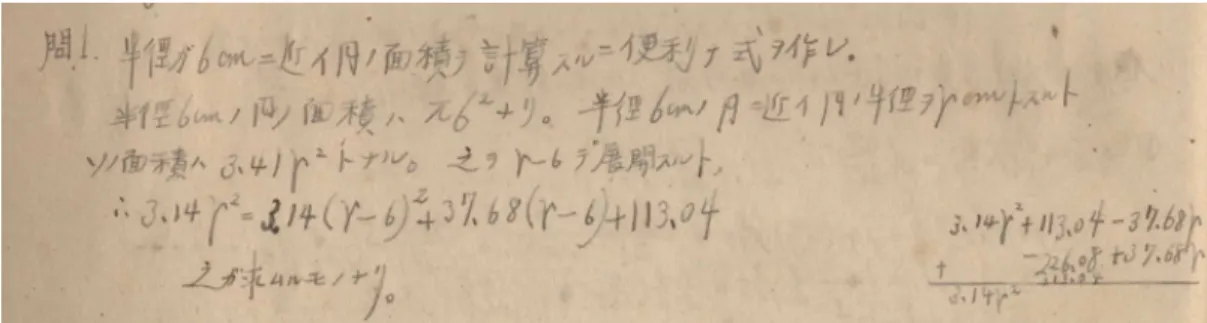 問1. 半徑ガ6cm=近イ円ノ面積ヲ計算スル=便利ナ式ヲ作レ。
半徑6cmノ円ノ面積ハ π6²ナリ。半徑6cmノ円=近イ円ノ半徑ヲrcmトスルト
ソノ面積ハ 3.41r²トナル。之ヲr-6デ展開スルト,
∴ 3.14r²=3.14(r-6)²+37.68(r-6)+113.04
之ガ求ムルモノナリ。
3.14r²+113.04-37.68r
+ -226.08+37.68r
3.14r²